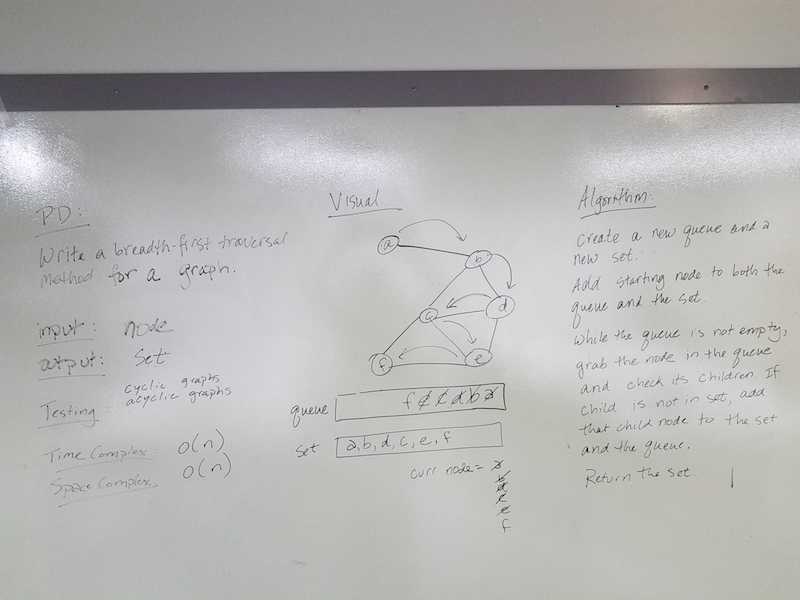 PD:
Write a breadth-first traversal
method for a graph.
input: node
output: Set
Testing
cyclic graphs
acyclic graphs
Time Complex: O(n)
Space Complex. O(n)
Visual
a
b
c
d
f
e
queue
f e c d b a
set
a, b, d, c, e, f
curr node = a
b
d
c
e
f
Algorithm:
Create a new queue and a
new set.
Add starting node to both the
queue and the set.
While the queue is not empty,
grab the node in the queue
and check its children. If
child is not in set, add
that child node to the set
and the queue.
Return the set.